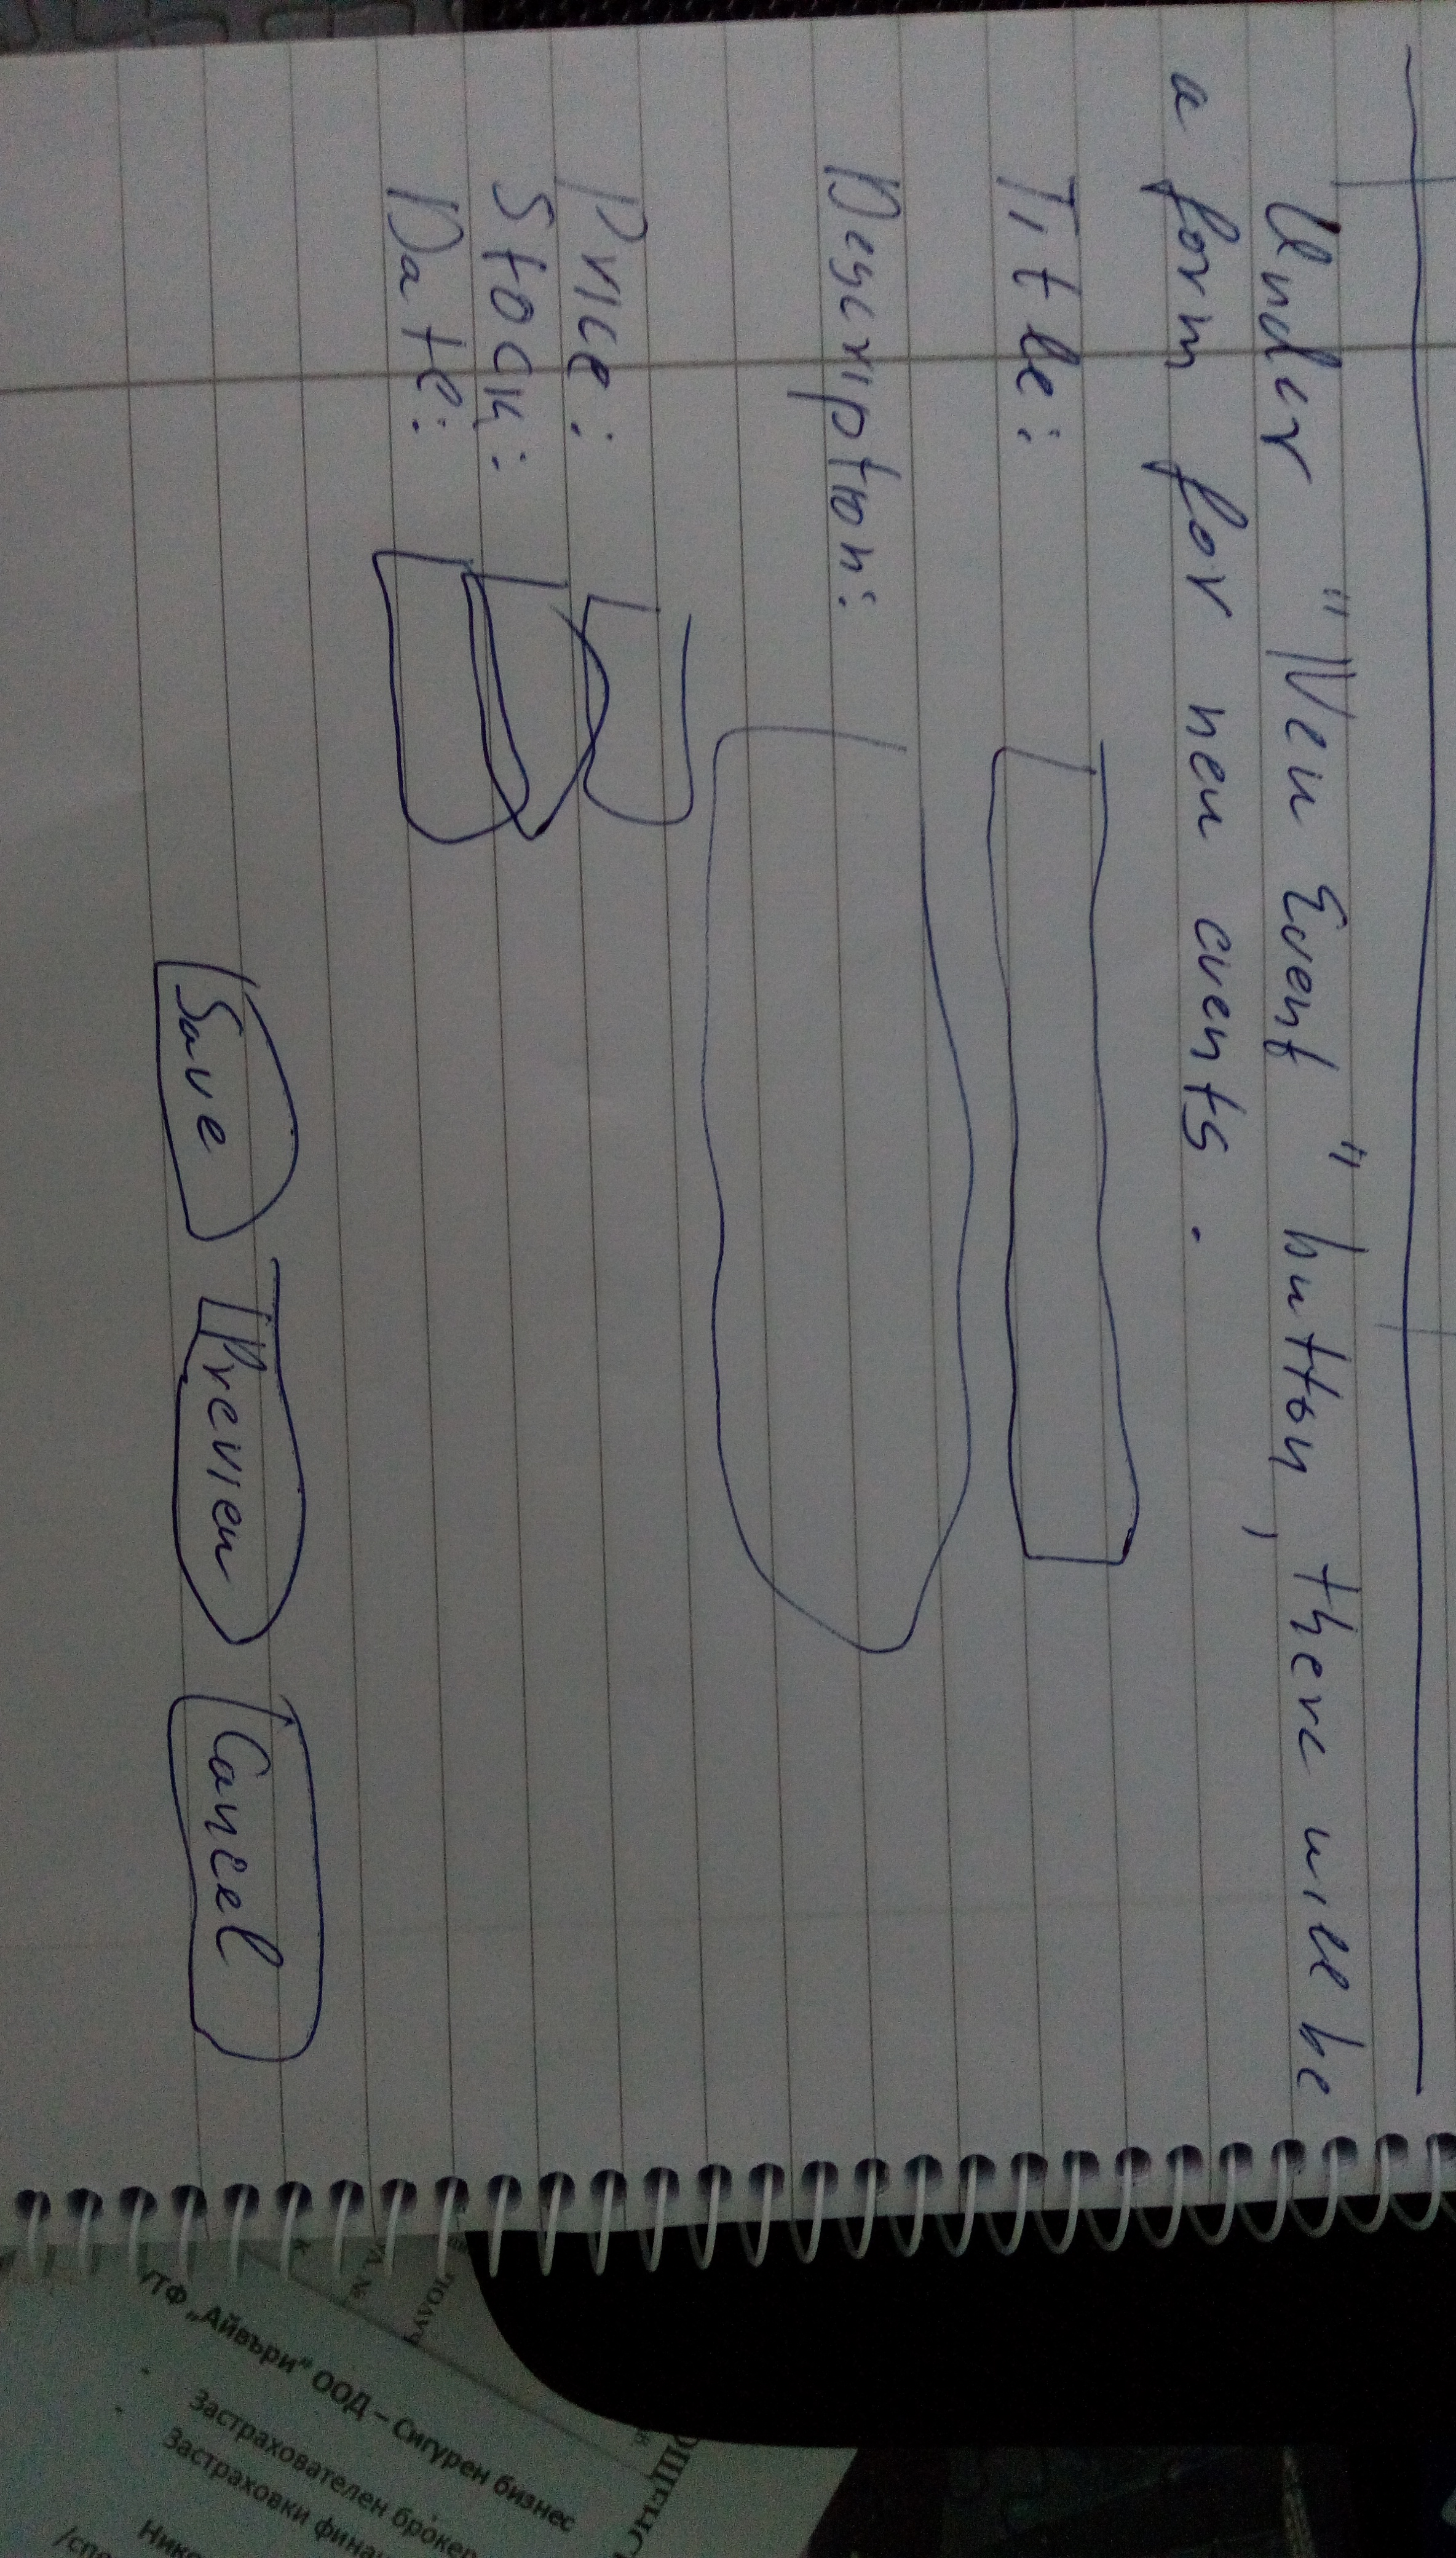 Under "New Event" button, there will be
a form for new events.
Title:
Description:
Price:
Stock:
Date:
Save Preview Cancel
"Айвъри" ООД – Сигурен бизнес
Застрахователен брокер
Застраховки